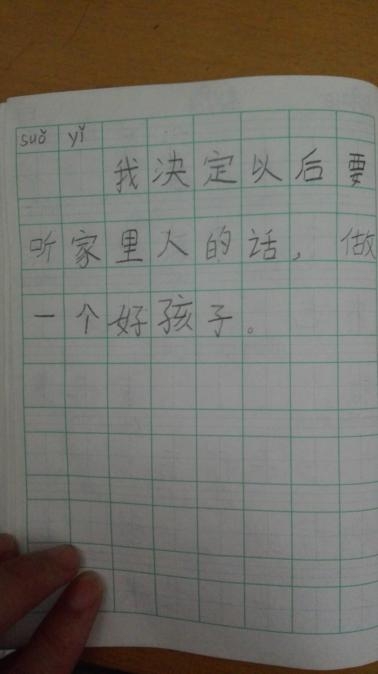 suǒ yǐ
我决定以后要
听家里人的话，做
一个好孩子。